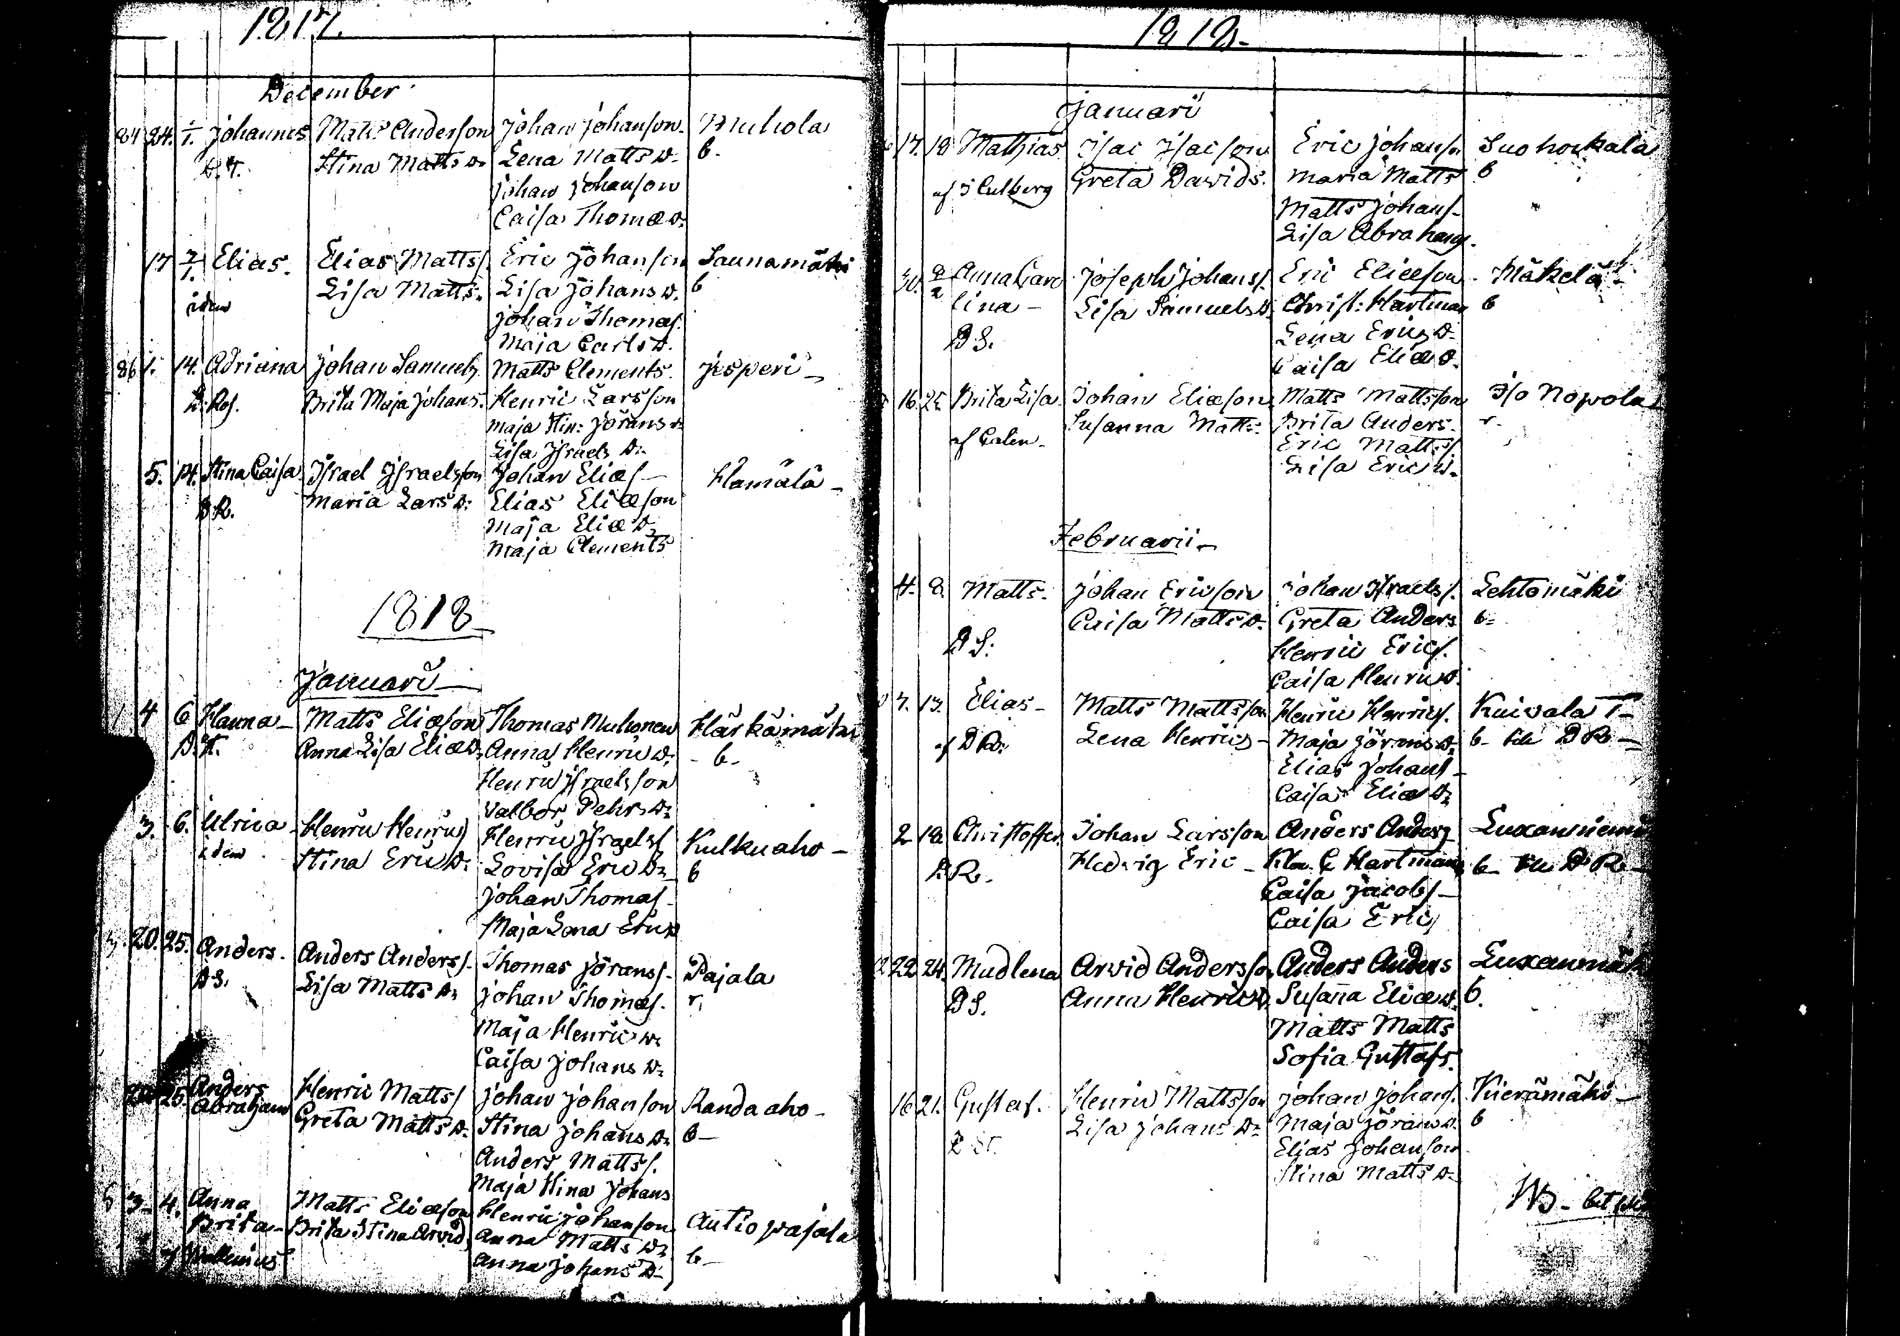 1817.
December
84 24. 1/1. Johannes Matts Anderson Johan Johanson Muhola
Stina Matts D. Lena Matts D. b.
Johan Johanson
Caisa Thomæ D.
17 7/1. Elias. Elias Mattss. Eric Johanson Saunamäki
idem Lisa Matts. Lisa Johans D. b
Johan Thomas.
Maja Carls D.
86 1. 14. Adriana Johan Samuels. Matts Clements. Jesperi
Brita Maja Johans. Henric Larsson
Maja Stin: Jörans D.
Lisa Israels D.
5. 14. Stina Caisa Israel Israelsson Johan Elias
D R. Maria Lars D: Elias Eliæson Hamälä
Maja Eliæ D.
Maja Clements
1818
Januarii
1 4 6 Hanna Matts Eliæson Thomas Muhonen Härkämäki
D. H. Anna Lisa Eliæ D. Anna Henric D: b.
Henric Israelsson
Valbor Pehrs D.
3. 6. Ulrica Henric Henrics Henric Israels Kulkuaho
idem Stina Eric D. Lovisa Eric D. b
Johan Thomas.
Maja Lena Eric D
20. 25. Anders. Anders Anders. Thomas Jörans. Pajala
D S. Lisa Matts D. Johan Thomas. r.
Maja Henric D.
Caisa Johans D.
25. Anders Abraham Henric Matts Johan Johanson Randa aho
Greta Matts D. Stina Johans D. b
Anders Matts.
Maja Stina Johans
5 3 4. Anna Brita Matts Eliæson Henric Johanson Autio pajala
Brita Stina Arvid Anna Matts D. b
Anna Johans D
1818.
Januarii
17. 18 Mathias Isac Isacson Eric Johans. Suo
Greta Davids. Maria Matts b
Matts Johans
Lisa Abrahams.
30. 2/2 Anna Caro Joseph Johans. Eric Eliæson Mäkelä
lina Lisa Samuels D. Christ: Hartman b
D S. Lena Erics D.
Caisa Eliæ D.
16. 25 Brita Lisa. Johan Eliæson Matts Mattsson Iso Nopola
Susanna Matts. Brita Anders. r.
Eric Matts.
Lisa Eric D.
Februarii
4. 8. Matts. Johan Ericson Johan Israels. Lehtomäki
Caisa Matts D. Greta Anders b.
D S. Henric Erics.
Caisa Henric D.
7. 13. Elias Matts Mattsson Henric Henrics. Kuivala T
af D R. Lena Henrics Maja Jörans D. b D R
Elias Johans
Caisa Eliæ D.
2 18 Christoffer Johan Larsson Anders Anders
D R. Hedvig Eric Hartman b D R
Caisa Jacobs
Caisa Eric
22 24. Madlena Arvid Andersson Anders Anders
D S. Anna Henric D. Susanna Eliæ D. b.
Matts Matts
Sofia Gustafs.
16 21. Gustaf. Henric Mattsson Johan Johans. Kierämäki
Lisa Johans D. Maja Jörans D. b
Elias Johanson
Stina Matts D.